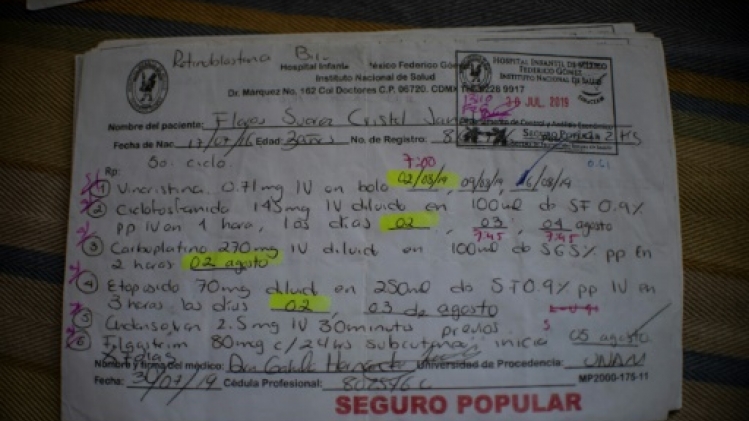 Retinoblastoma Bi-
Hospital Infantil México Federico Gómez
Instituto Nacional de Salud
Dr. Márquez No. 162 Col Doctores C.P. 06720. CDMX Tel. 5228 9917
HOSPITAL INFANTIL DE MÉXICO
FEDERICO GÓMEZ
INSTITUTO NACIONAL DE SALUD
30 JUL. 2019
SEGURO POPULAR
Nombre del paciente: Suarez Cristal
Fecha de Nac. 17/07/16 Edad 3años No. de Registro:
5o. ciclo. 7:00
Rp:
1 Vincristina 0.71mg IV en bolo 02/08/19, 09/08/19, 16/08/19
2 Ciclofosfamida 145mg IV diluido en 100ml de SF 0.9%
pp IV en 1 hora, los días 02, 03 04 agosto
7:45 7:45
3 Carboplatino 270mg IV diluido en 100ml de SG5% pp en
2 horas 02 agosto
4 Etoposido 70mg diluido en 250ml de SF0.9% pp IV en
3 horas los días 02, 03 de agosto
5 Ondansetron 2.5mg IV 30minutos previos
6 Filgrastim 80mg c/24hs subcutanea, inicia 05 agosto
5 días
Nombre y firma del médico: Dra Universidad de Procedencia: UNAM
Fecha: 30/07/19 Cédula Profesional: MP2000-175-11
SEGURO POPULAR